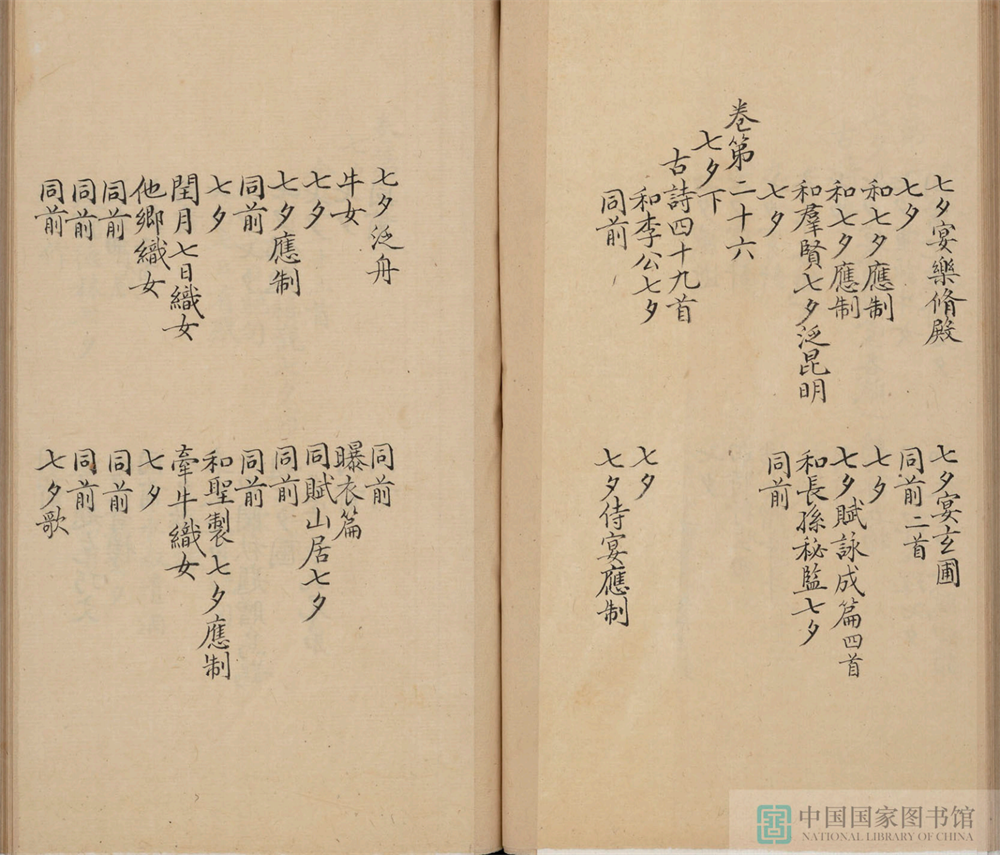 七夕宴樂脩殿　七夕宴玄圃
七夕　同前二首
和七夕應制　七夕
和七夕應制　七夕賦詠成篇四首
和羣賢七夕泛昆明　和長孫秘監七夕
七夕　同前
卷第二十六
七夕下
古詩四十九首
和李公七夕　七夕
同前　七夕侍宴應制
七夕泛舟　同前
牛女　曝衣篇
七夕　同賦山居七夕
七夕應制　同前
同前　同前
七夕　和聖製七夕應制
閏月七日織女　牽牛織女
他鄉織女　七夕
同前　同前
同前　同前
同前　七夕歌
中国国家图书馆
NATIONAL LIBRARY OF CHINA